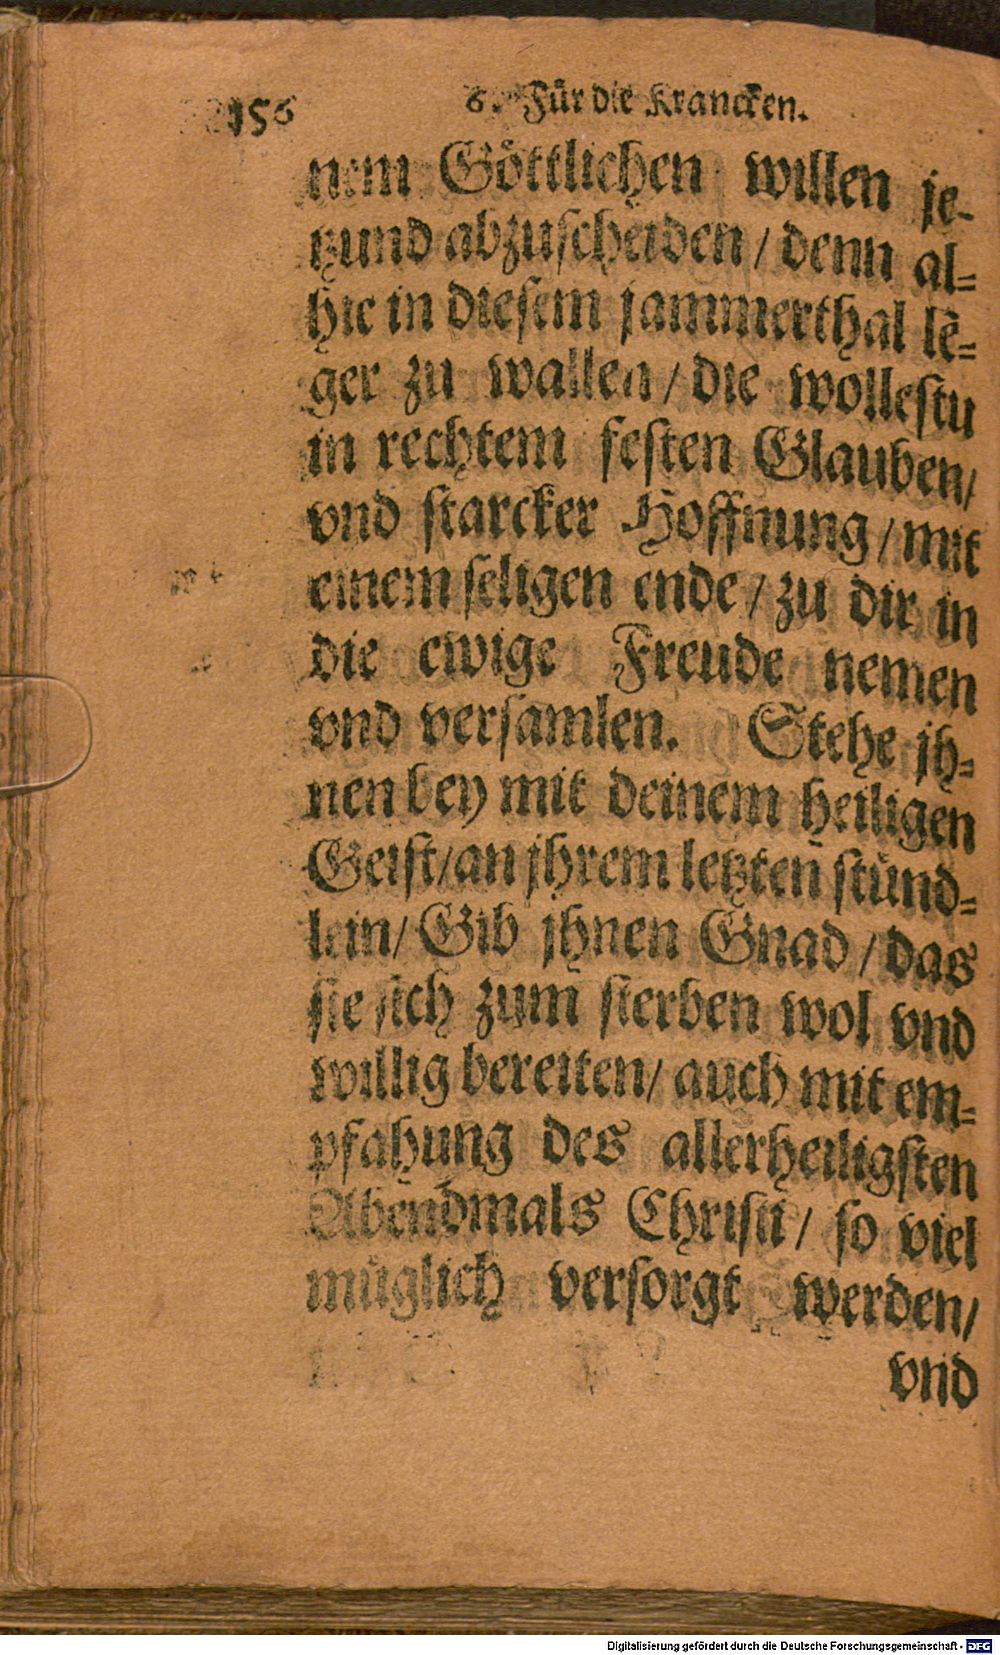 156 6. Für die Krancken.
nem Göttlichen willen je-
tzund abzuscheiden / denn al-
hie in diesem jammerthal lĕ-
ger zu wallen / die wollestu
in rechtem festen Glauben/
vnd starcker Hoffnung / mit
einem seligen ende / zu dir in
die ewige Freude nemen
vnd versamlen. Stehe jh-
nen bey mit deinem heiligen
Geist/an jhrem letzten stünd-
lein/ Gib jhnen Gnad / das
sie sich zum sterben wol vnd
willig bereiten/ auch mit em-
pfahung des allerheiligsten
Abendmals Christi/ so viel
müglich versorgt werden/
vnd
Digitalisierung gefördert durch die Deutsche Forschungsgemeinschaft - DFG